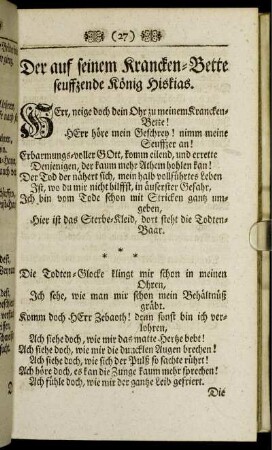 (27)
Der auf seinem Krancken-Bette
seuffzende König Hiskias.
HErr, neige doch dein Ohr zu meinem Krancken-
Bette!
HErr höre mein Geschrey! nimm meine
Seuffzer an!
Erbarmungs-voller GOtt, komm eilend, und errette
Denjenigen, der kaum mehr Athem hohlen kan!
Der Tod der nähert sich, mein halb vollführtes Leben
Ist, wo du mir nicht hilffst, in äuserster Gefahr,
Ich bin vom Tode schon mit Stricken gantz um-
geben,
Hier ist das Sterbe-Kleid, dort steht die Todten-
Baar.
* * *
Die Todten-Glocke klingt mir schon in meinen
Ohren,
Ich sehe, wie man mir schon mein Behältnüß
gräbt.
Komm doch HErr Zebaoth! denn sonst bin ich ver-
lohren,
Ach siehe doch, wie mir das matte Hertze bebt!
Ach siehe doch, wie mir die duncklen Augen brechen!
Ach siehe doch, wie sich der Pulß so sachte rührt!
Ach höre doch, es kan die Zunge kaum mehr sprechen!
Ach fühle doch, wie mir der gantze Leib gefriert.
Die